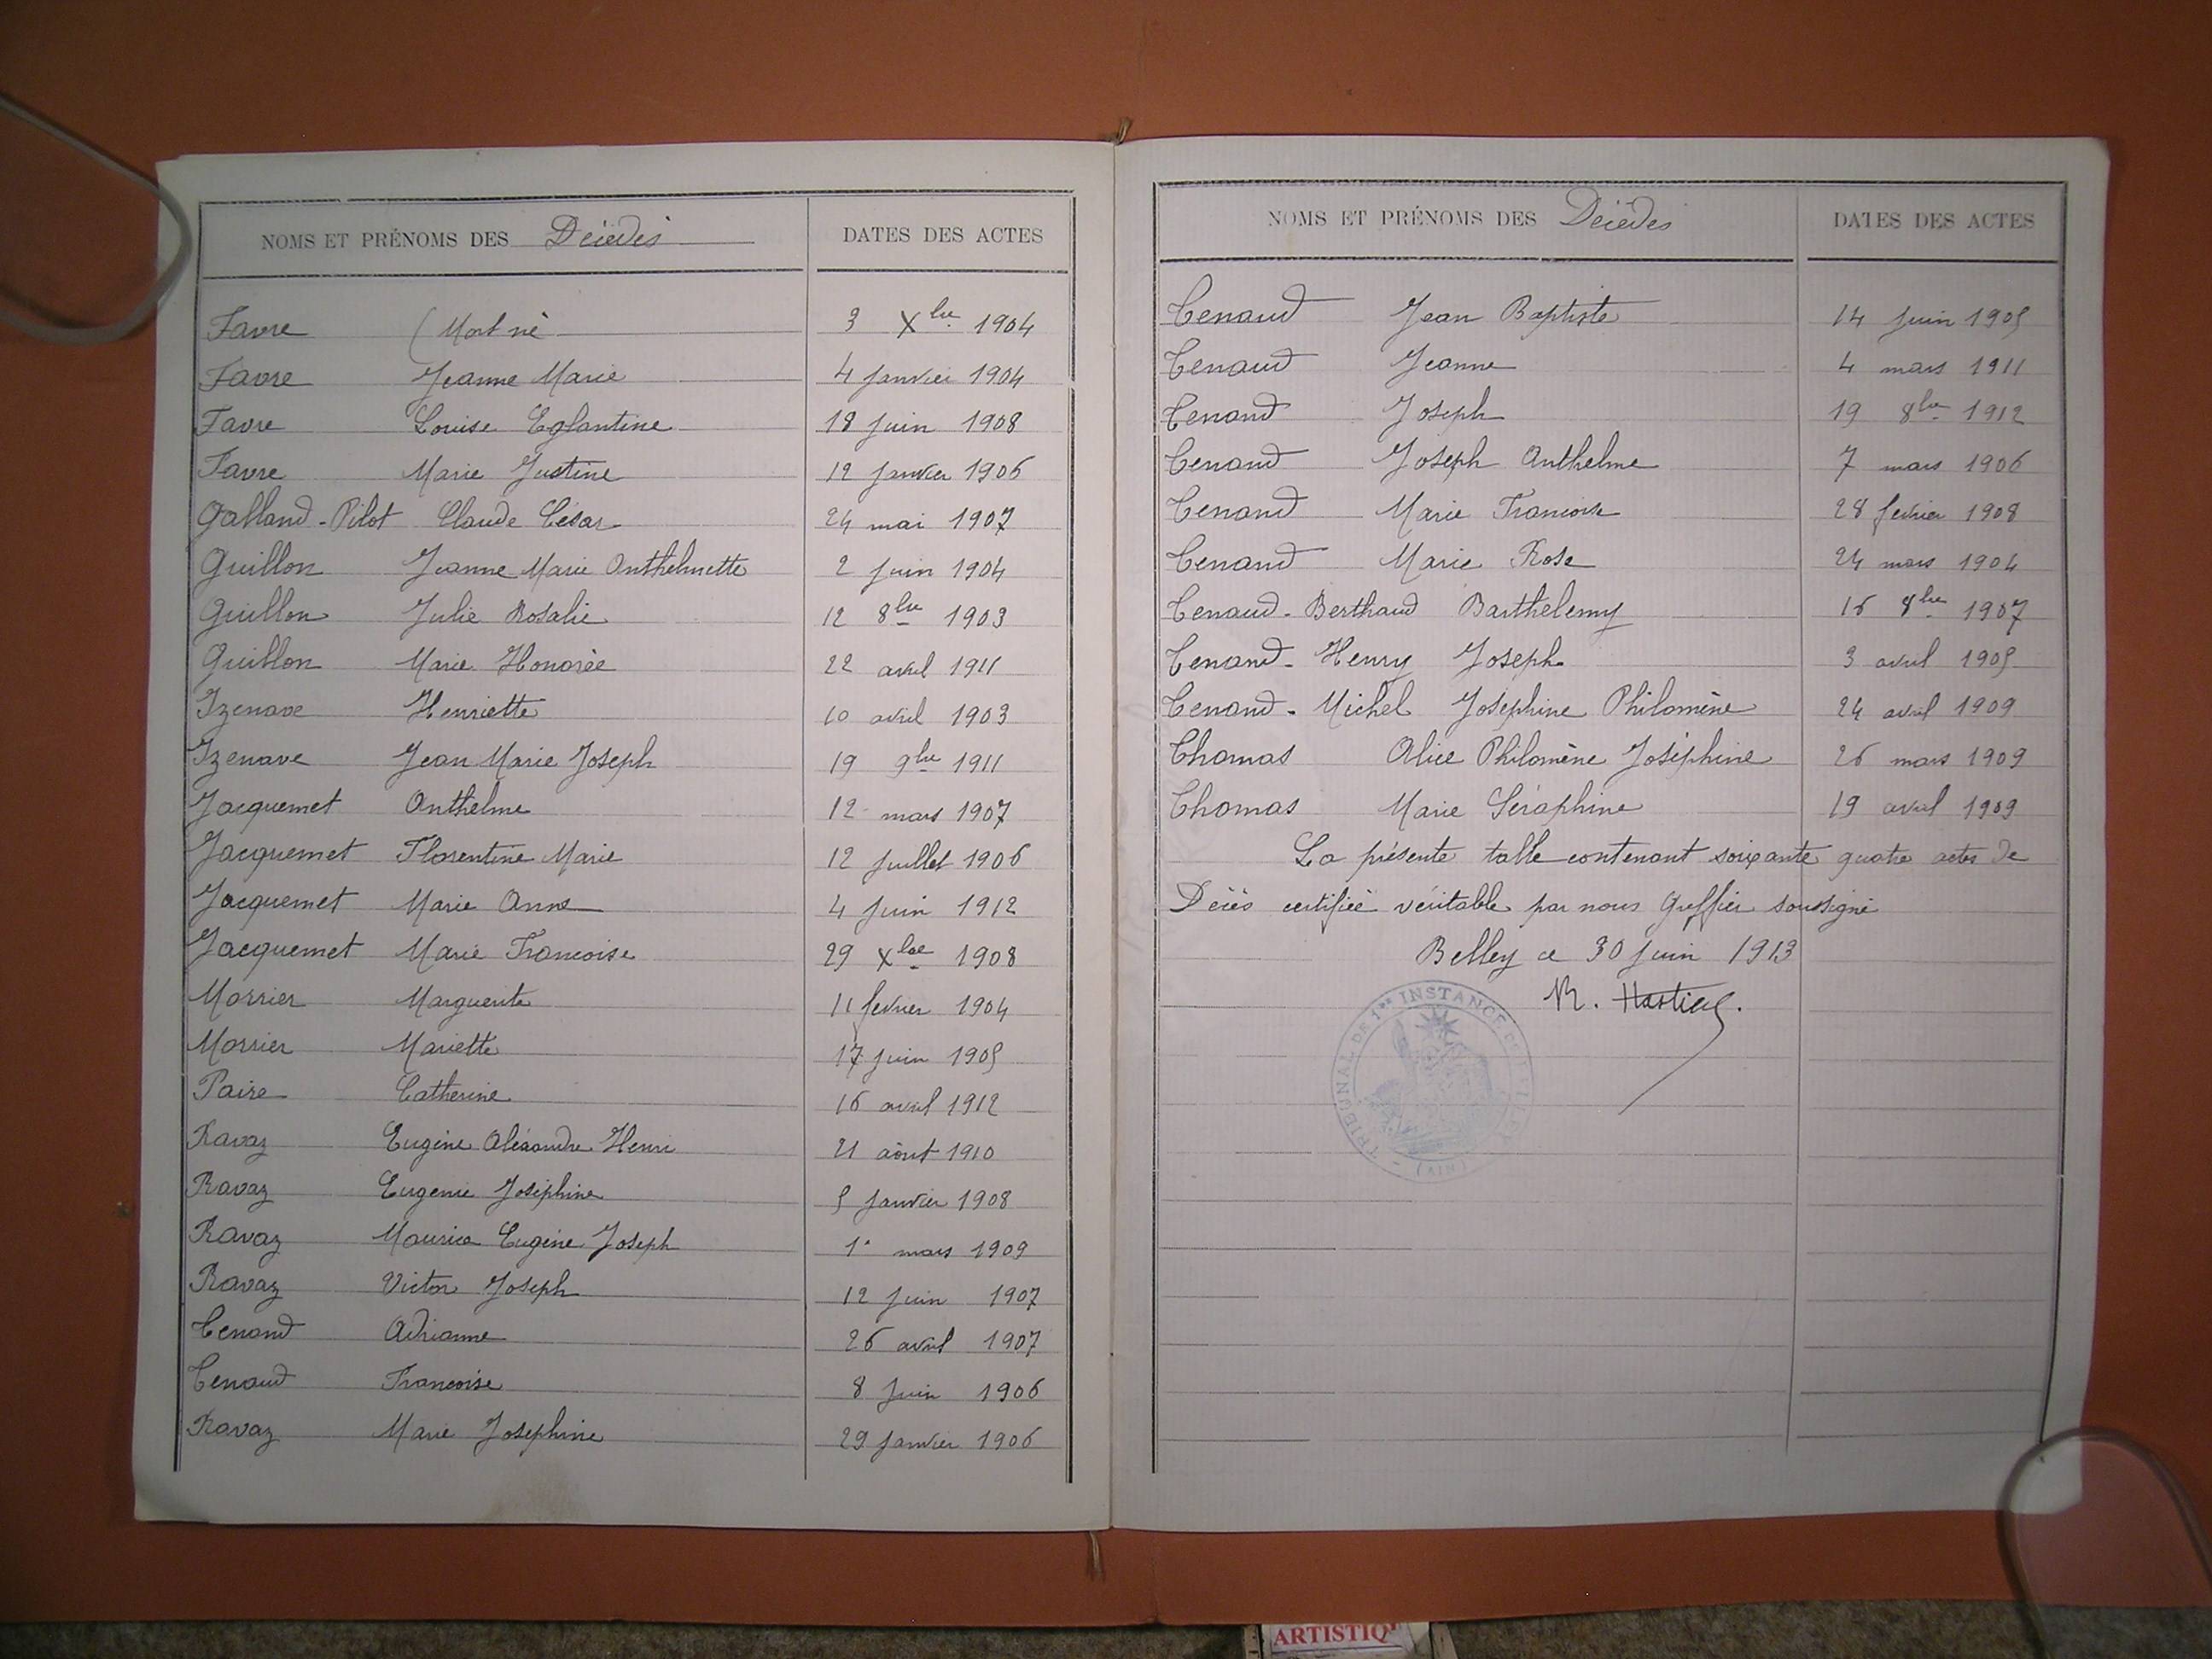 NOMS ET PRÉNOMS DES Décédés DATES DES ACTES
Favre (Mort né 3 Xbre 1904
Favre Jeanne Marie 4 Janvier 1904
Favre Louise Eglantine 18 Juin 1908
Favre Marie Justine 12 Janvier 1906
Galland-Pilot Claude César 24 mai 1907
Guillon Jeanne Marie Anthelmette 2 Juin 1904
Guillon Julie Rosalie 12 8bre 1903
Guillon Marie Honorée 22 avril 1911
Izenave Henriette 10 avril 1903
Izenave Jean Marie Joseph 19 9bre 1911
Jacquemet Anthelme 12 mars 1907
Jacquemet Florentine Marie 12 Juillet 1906
Jacquemet Marie Anne 4 Juin 1912
Jacquemet Marie Francoise 29 Xbre 1908
Morrier Marguerite 11 fevrier 1904
Morrier Mariette 17 Juin 1905
Paire Catherine 16 avril 1912
Ravaz Eugène Aléxandre Henri 21 août 1910
Ravaz Eugenie Joséphine 5 Janvier 1908
Ravaz Maurice Eugène Joseph 1er mars 1909
Ravaz Victor Joseph 12 Juin 1907
Tenand Adrianne 26 avril 1907
Tenand Francoise 8 Juin 1906
Ravaz Marie Joséphine 29 Janvier 1906
NOMS ET PRÉNOMS DES Décédés DATES DES ACTES
Tenand Jean Baptiste 14 Juin 1905
Tenand Jeanne 4 mars 1911
Tenand Joseph 19 8bre 1912
Tenand Joseph Anthelme 7 mars 1906
Tenand Marie Francoise 28 fevrier 1908
Tenand Marie Rose 24 mars 1904
Tenand-Berthaud Barthelemy 16 8bre 1907
Tenand-Henry Joseph 3 avril 1905
Tenand-Michel Joséphine Philomène 24 avril 1909
Thomas Alice Philomène Joséphine 26 mars 1909
Thomas Marie Séraphine 19 avril 1909
La présente table contenant soixante quatre actes de
Décès certifiée véritable par nous Greffier soussigné
Belley ce 30 Juin 1913
TRIBUNAL DE 1re INSTANCE DE BELLEY
(AIN)
ARTISTIQ